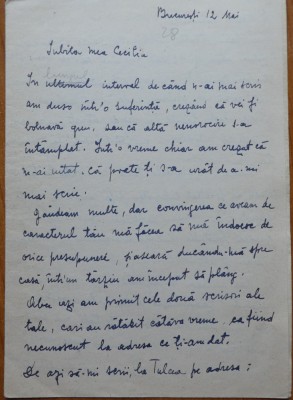 București 12 Mai
28
Iubita mea Cecilia
In ultimul interval de când n-ai mai scris
am dus-o într'o suferință, crezând că vei fi
bolnavă greu, sau că altă nenorocire s-a
întâmplat. Într'o vreme chiar am crezut că
m-ai uitat. Că poate ți s-a urât de a-mi
mai scrie.
Gândeam multe, dar convingerea ce aveam de
caracterul tău mă făcea să mă îndoesc de
orice presupunere, și aseară ducându-mă spre
casă într'un târziu am început să plâng.
Abea azi am primit cele două scrisori ale
tale, cari au rătăcit câtăva vreme, ca fiind
necunoscut la adresa ce ți-am dat.
De azi să-mi scrii, la Tulcea pe adresa: